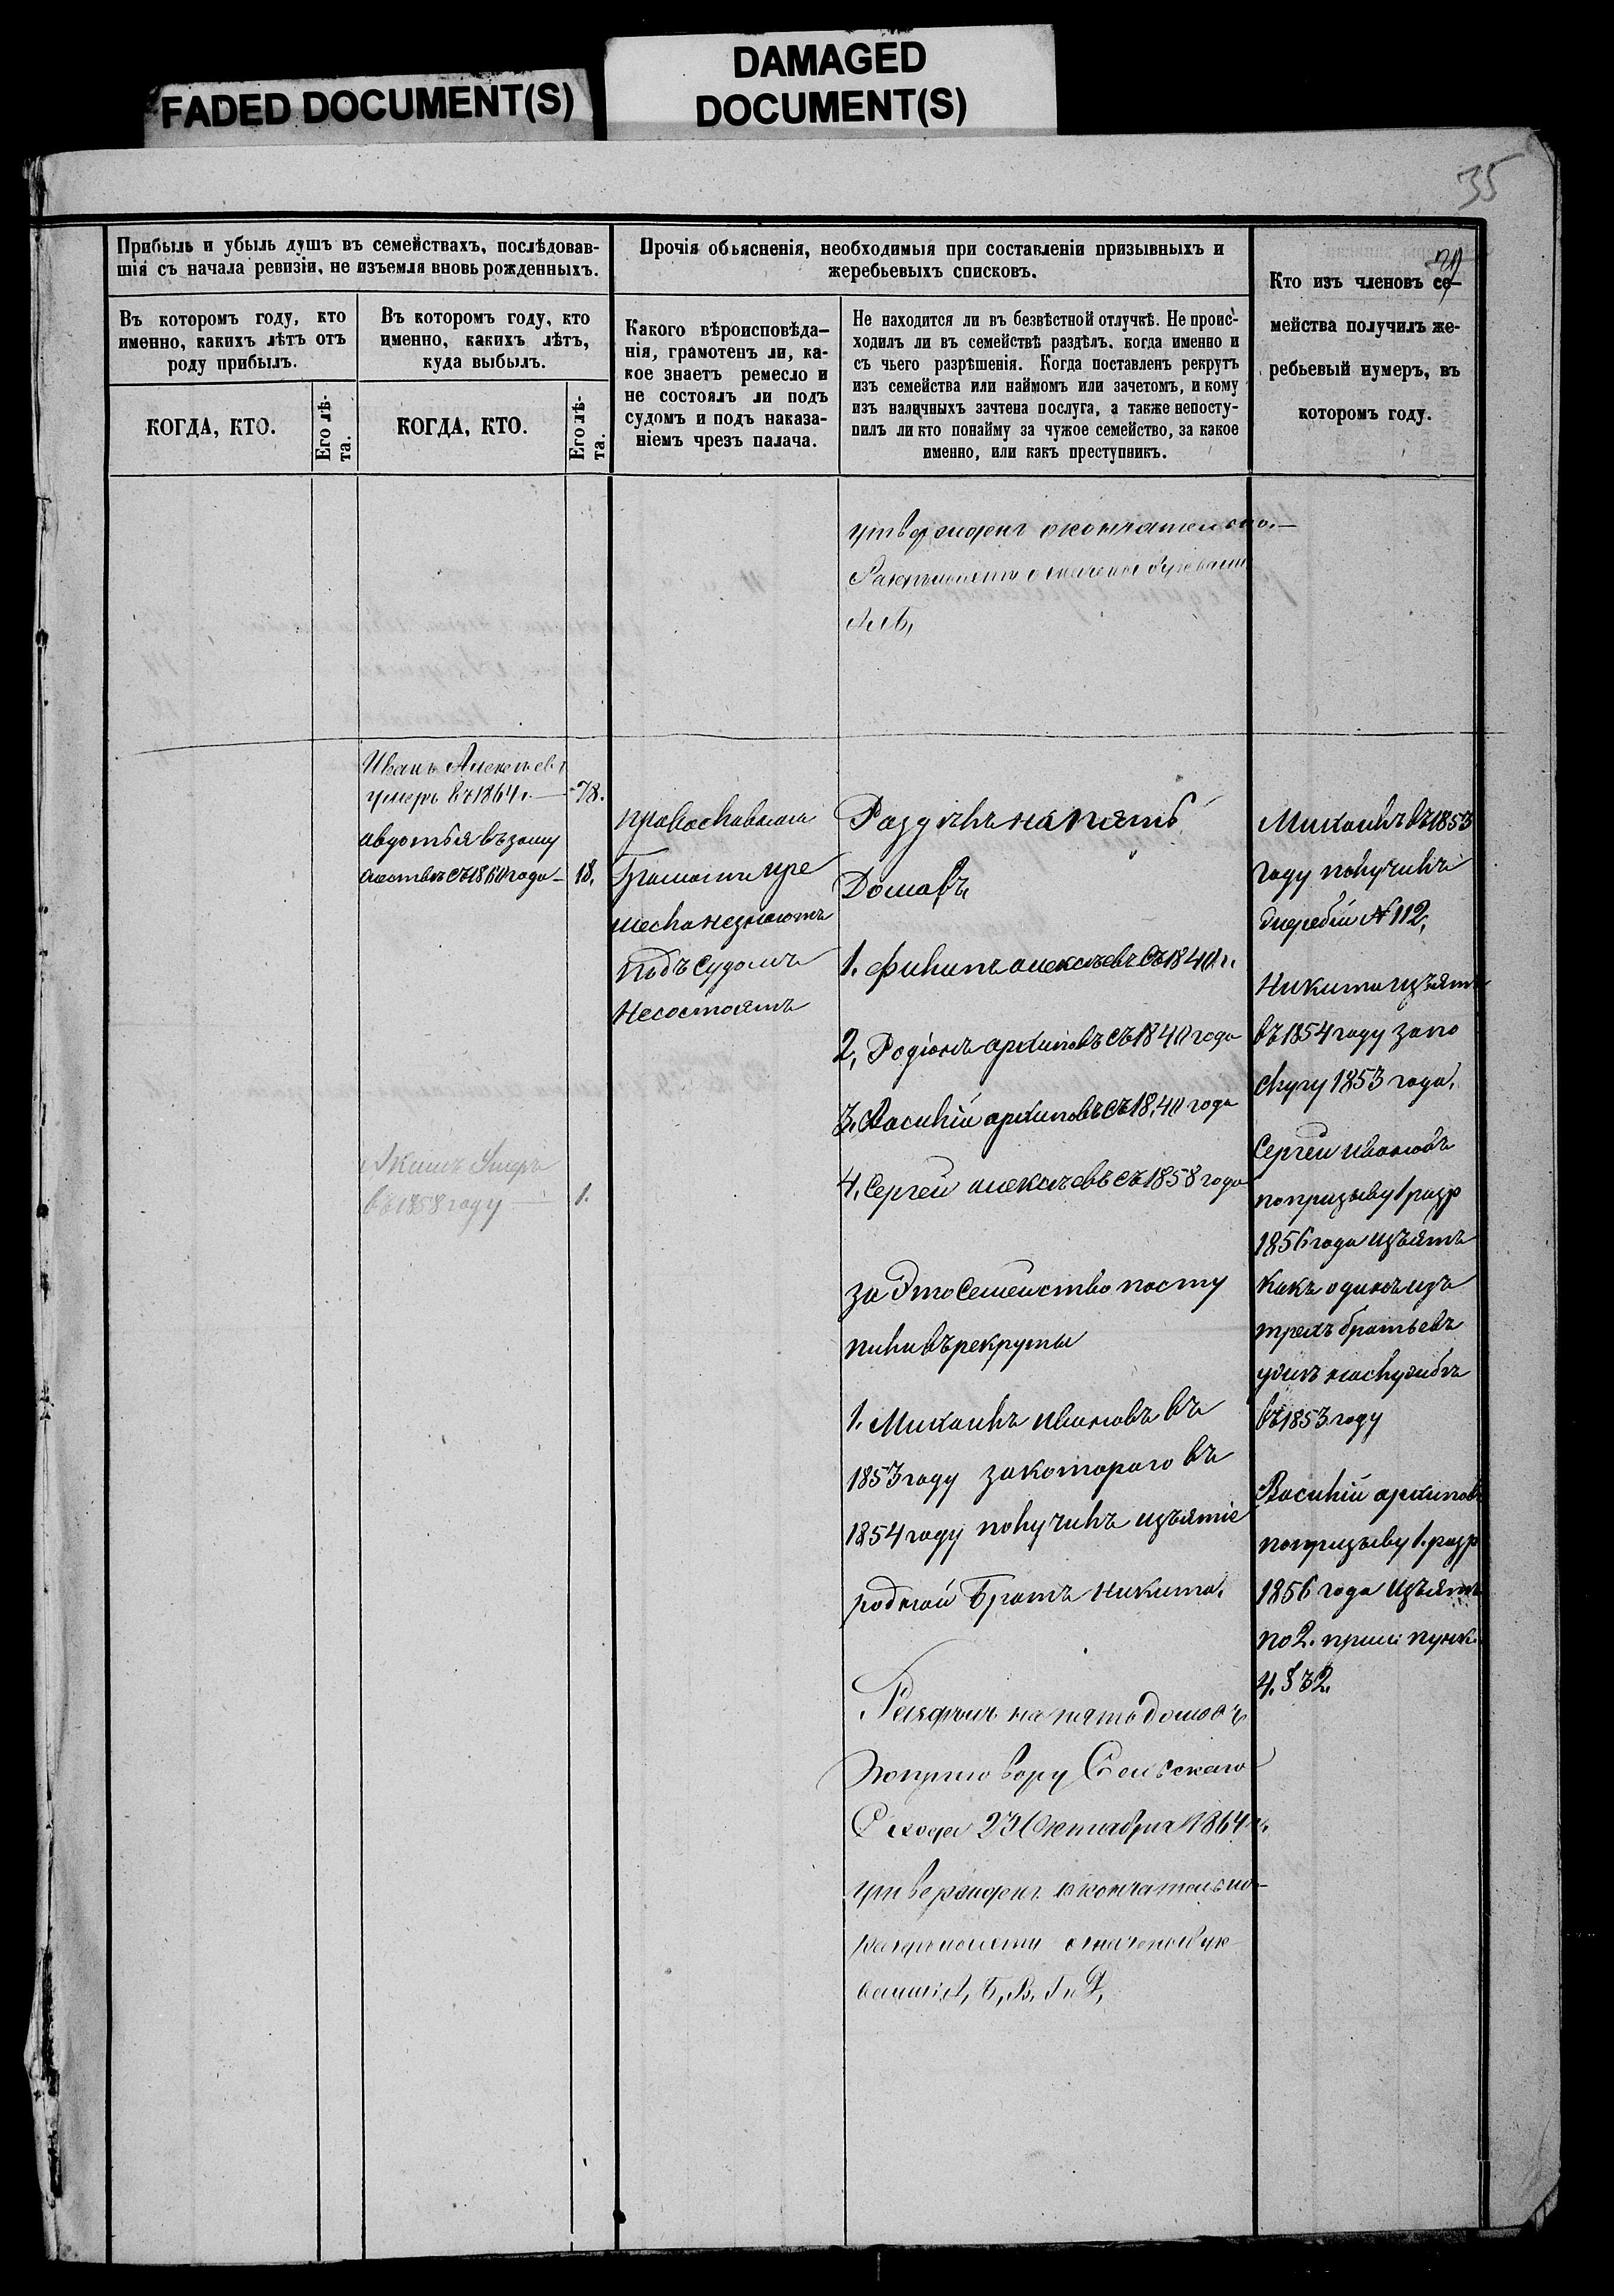 FADED DOCUMENT(S)
DAMAGED
DOCUMENT(S)
35
Прибыль и убыль душъ въ семействахъ, послѣдовав-
шія съ начала ревизіи, не изъемля вновь рожденныхъ.
Въ которомъ году, кто
именно, какихъ лѣтъ отъ
роду прибылъ.
КОГДА, КТО.
Его лѣ-
та.
Въ которомъ году, кто
именно, какихъ лѣтъ,
куда выбылъ.
КОГДА, КТО.
Его лѣ-
та.
Прочія объясненія, необходимыя при составленіи призывныхъ и
жеребьевыхъ списковъ.
Какого вѣроисповѣда-
нія, грамотенъ ли, ка-
кое знаетъ ремесло и
не состоялъ ли подъ
судомъ и подъ наказа-
ніемъ чрезъ палача.
Не находится ли въ безвѣстной отлучкѣ. Не проис-
ходилъ ли въ семействѣ раздѣлъ. когда именно и
съ чьего разрѣшенія. Когда поставленъ рекрутъ
изъ семейства или наймомъ или зачетомъ, и кому
изъ наличныхъ зачтена послуга, а также непосту-
пилъ ли кто понайму за чужое семейство, за какое
именно, или какъ преступникъ.
Кто изъ членовъ се-
мейства получилъ же-
ребьевый нумеръ, въ
которомъ году.
утвержденъ окончательно.—
Иванъ Алексѣевъ
умеръ въ 1864г. — 78.
авдотья въ заму
жествѣ съ 1860 года — 18.
Акимъ Умеръ
въ 1858 году — 1.
православнаго
Грамоты и ре
месла незнаютъ
подъ судомъ
Несостоятъ
Раздѣлъ на пять
Домовъ
1. филипъ алексѣевъ съ 1840 г.
2, Родіонъ архиповъ съ 1840 года
3, Василій архиповъ съ 1840 года
4, Сергей алексѣевъ съ 1858 года
за Это Семейство посту
пили въ рекруты
1. Михаилъ ивановъ въ
1853 году за котораго въ
1854 году получилъ изъятіе
родной Братъ Никита.
на пять домовъ
по приговору Сельскаго
Схода 23 Октября 1864 г.
утвержденъ окончательно
А, Б, В, Г и Д,
Михаилъ въ 1853
году получилъ
жеребій № 112,
Никита изъятъ
въ 1854 году за по
слугу 1853 года,
Сергей ивановъ
по призыву 1 разр
1856 года изъятъ
какъ одинъ изъ
трехъ братьевъ
въ 1853 году
Василій архиповъ
по призыву 1. разр
1856 года изъятъ
по 2. прим: пунк.
4. § 32.